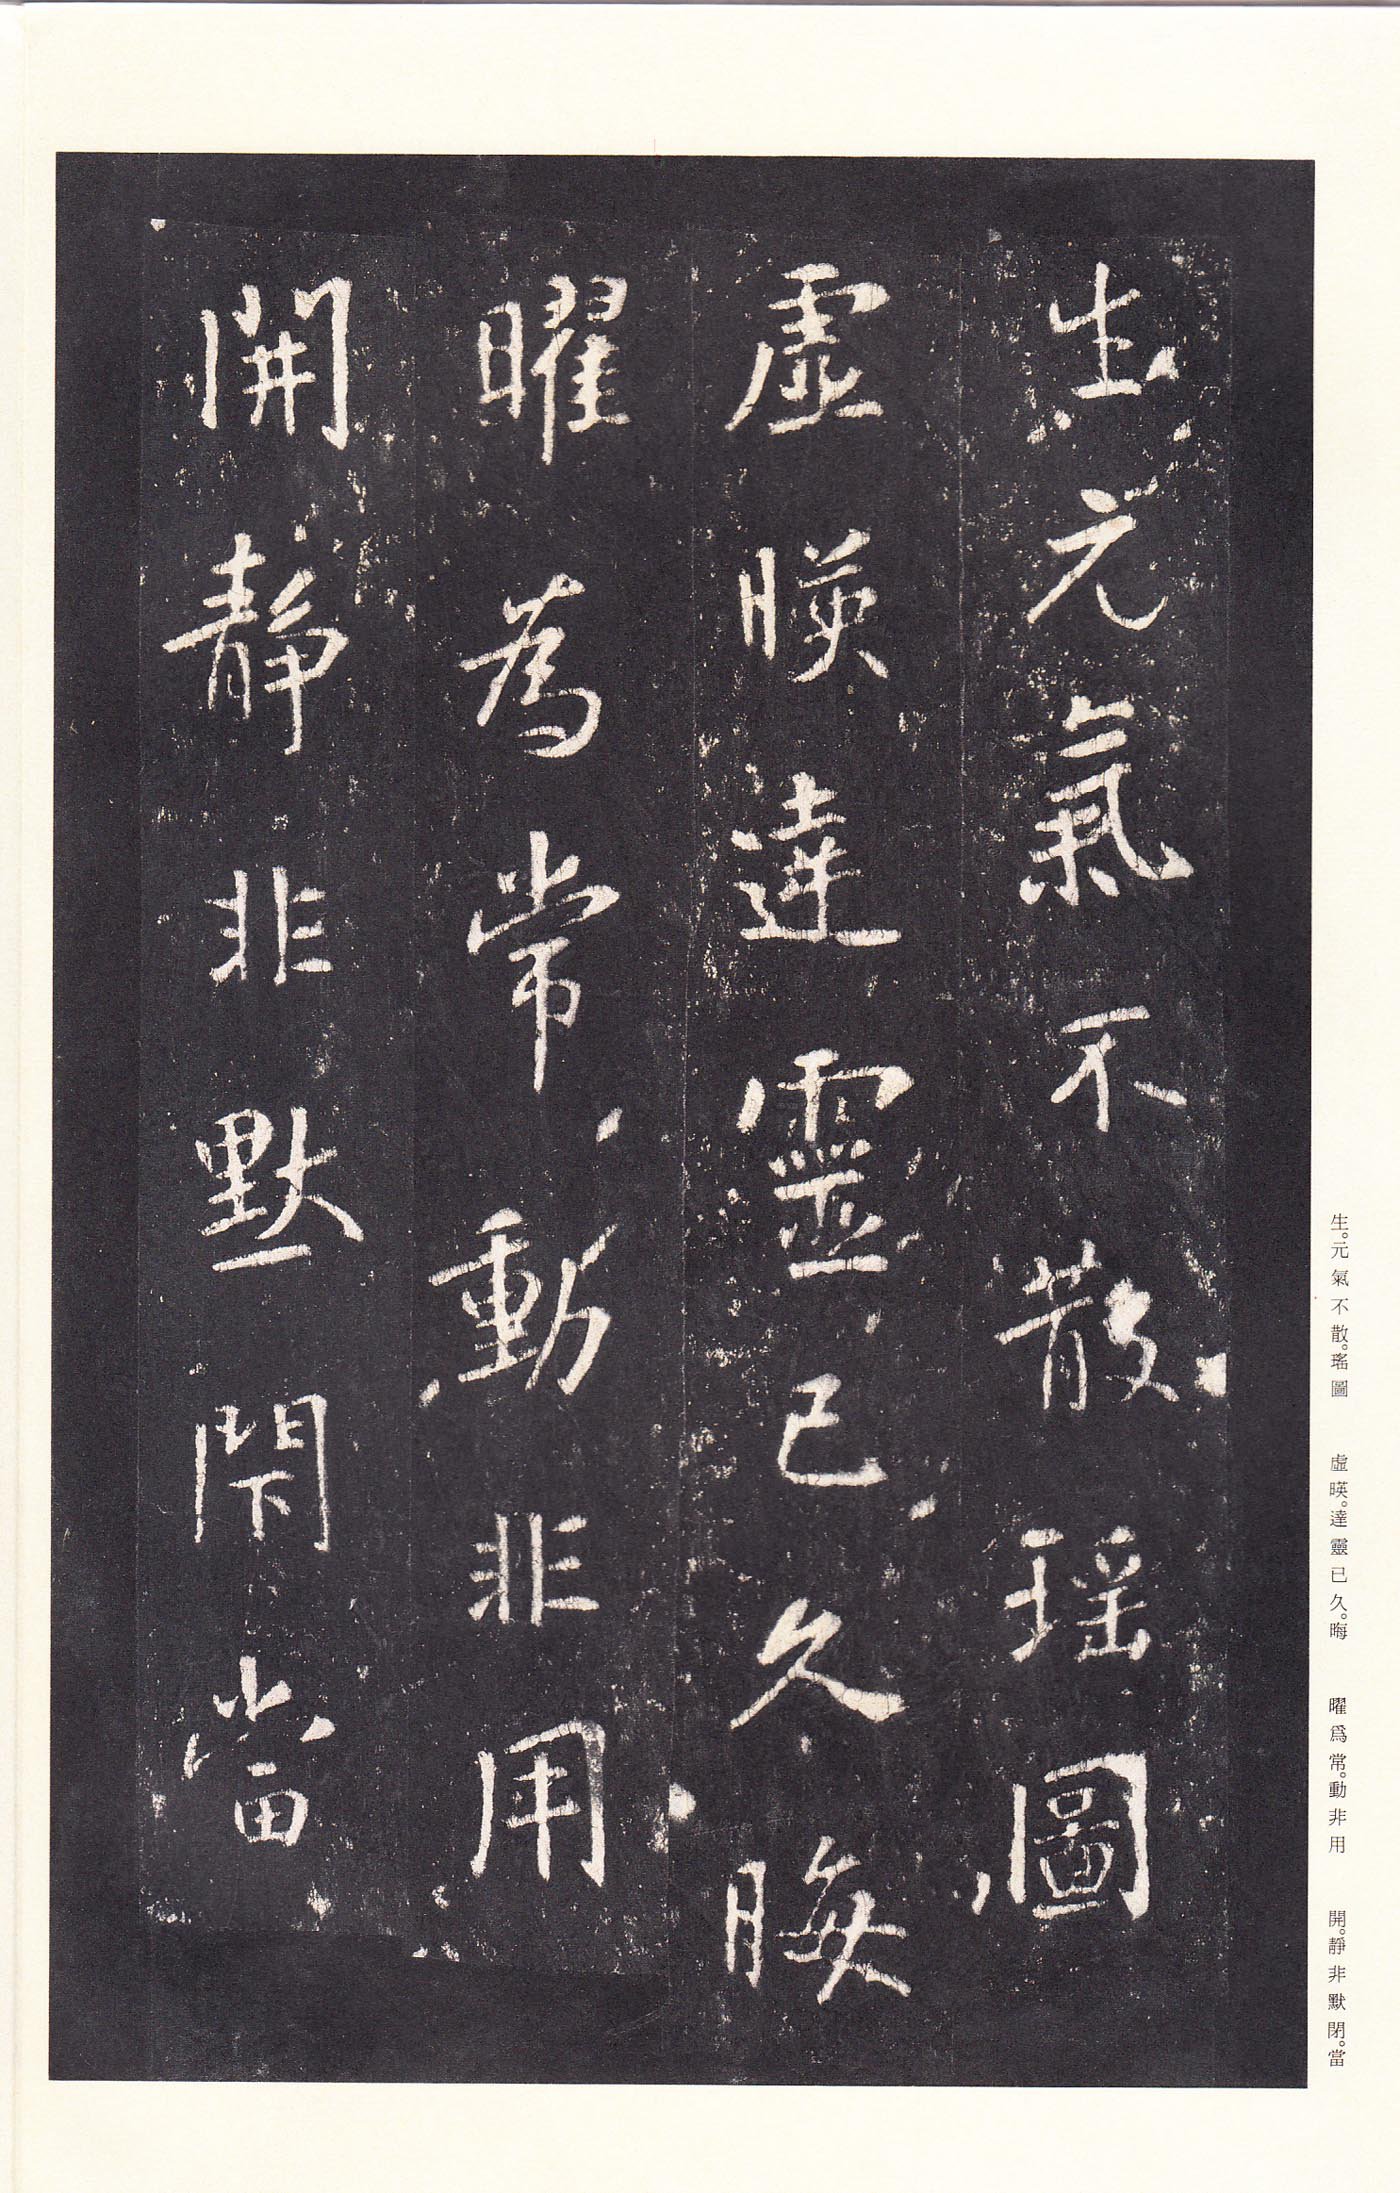 生元氣不散瑤圖
虛暎達靈已久晦
曜為常動非用
開靜非默閇當
生。元氣不散。瑤圖
虛暎。達靈已久。晦
曜爲常。動非用
開。靜非默閉。當